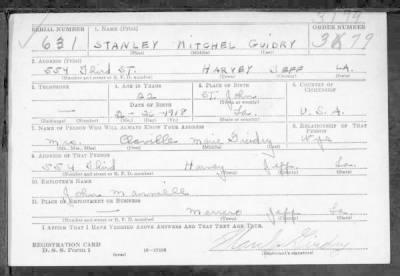 3179
SERIAL NUMBER 1. NAME (Print) ORDER NUMBER
631 STANLEY MITCHEL GUIDRY 3179
(First) (Middle) (Last)
2. ADDRESS (Print)
554 Third ST. HARVEY JEFF LA.
(Number and street or R. F. D. number) (Town) (County) (State)
3. TELEPHONE 4. AGE IN YEARS 5. PLACE OF BIRTH 6. COUNTRY OF CITIZENSHIP
22 St. John
DATE OF BIRTH (Town or county)
— 1918 La. U.S.A.
(Exchange) (Number) (Mo.) (Day) (Yr.) (State or country)
7. NAME OF PERSON WHO WILL ALWAYS KNOW YOUR ADDRESS 8. RELATIONSHIP OF THAT PERSON
Mrs. Marie Guidry Wife
(Mr., Mrs., Miss) (First) (Middle) (Last)
9. ADDRESS OF THAT PERSON
554 Third Harvey Jeff. La.
(Number and street or R. F. D. number) (Town) (County) (State)
10. EMPLOYER'S NAME
Johns Manville
11. PLACE OF EMPLOYMENT OR BUSINESS
— Marrero Jeff La.
(Number and street or R. F. D. number) (Town) (County) (State)
I AFFIRM THAT I HAVE VERIFIED ABOVE ANSWERS AND THAT THEY ARE TRUE.
REGISTRATION CARD
D. S. S. Form 1 (over) 16—17105 (Registrant's signature)
Guidry